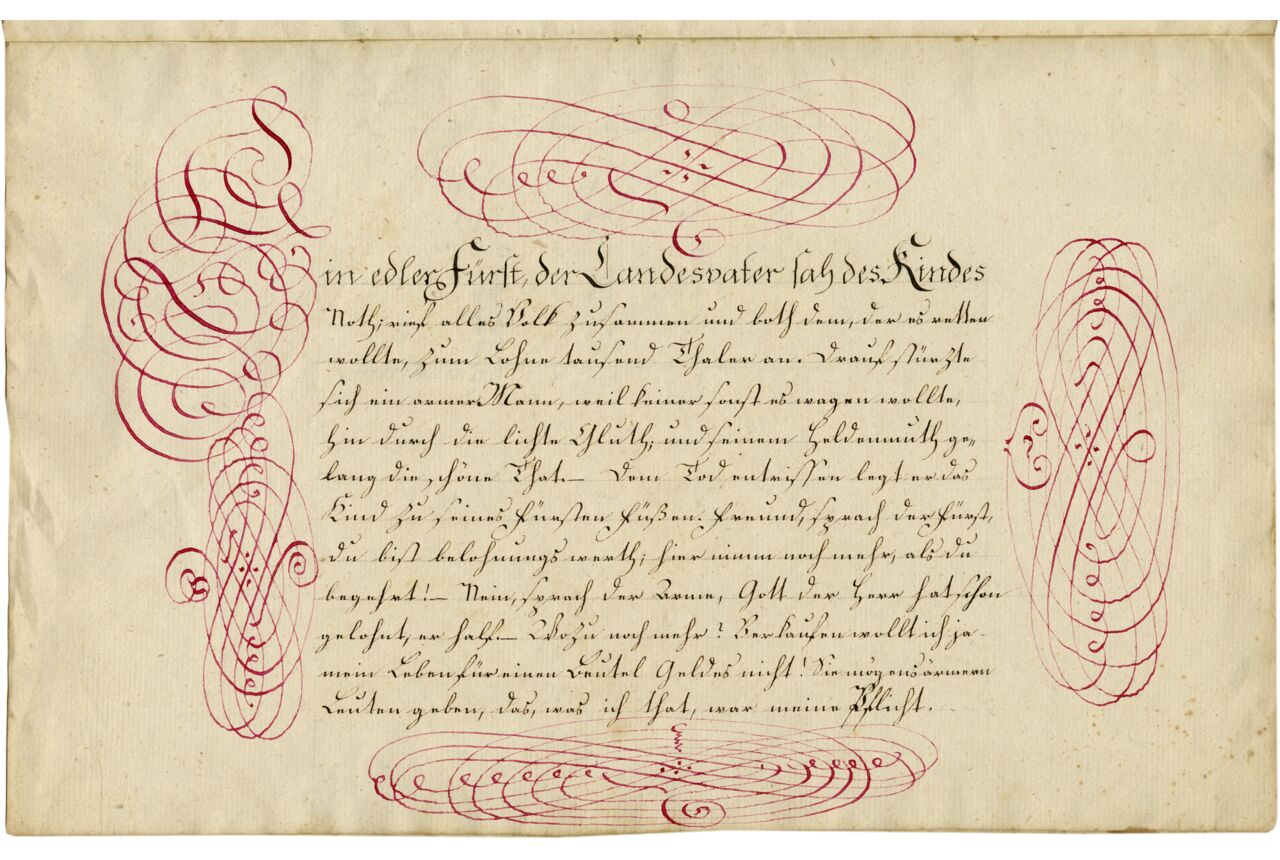 Ein edler Fürst, der Landesvater sah des Kindes
Noth; rief alles Volk zusammen und both dem, der es retten
wollte, zum Lohne tausend Thaler an. Drauf stürzte
sich ein armer Mann, weil keiner sonst es wagen wollte,
hin durch die lichte Gluth; und seinem Heldenmuth ge-
lang die schöne That. — Dem Tod entrissen legt er das
Kind zu seines Fürsten Füßen. Freund, sprach der Fürst,
du bist belohnungswerth; hier nimm noch mehr, als du
begehrt! — Nein, sprach der Arme, Gott der Herr hat schon
gelohnt, er half. — Wozu noch mehr? Verkaufen wollt ich ja
mein Leben für einen Beutel Geldes nicht! Sie mögens ärmern
Leuten geben, das, was ich that, war meine Pflicht.